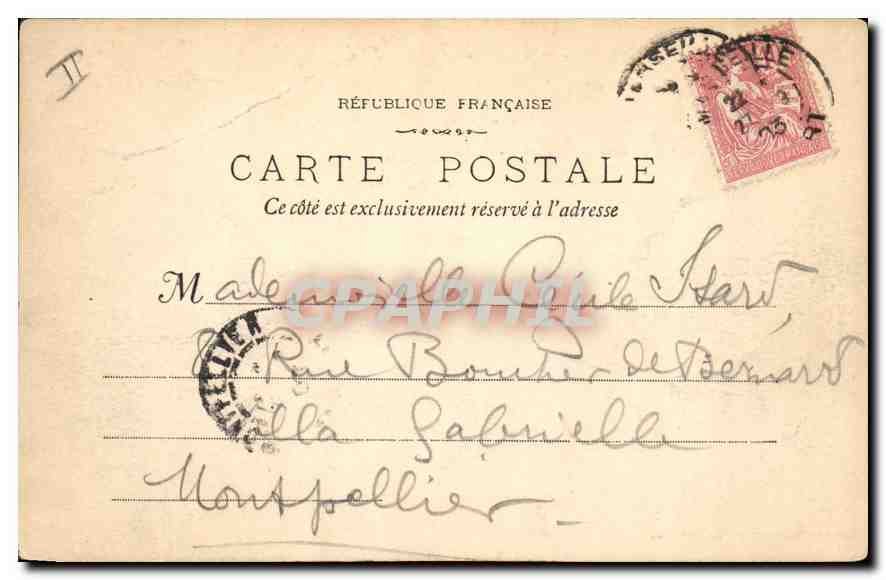 II
RÉPUBLIQUE FRANÇAISE
CARTE POSTALE
Ce côté est exclusivement réservé à l'adresse
Mademoiselle Cécile Isard
8 Rue Boucher de Bernard
Villa Gabrielle
Montpellier
CPAPHIL
MARSEILLE
MONTPELLIER